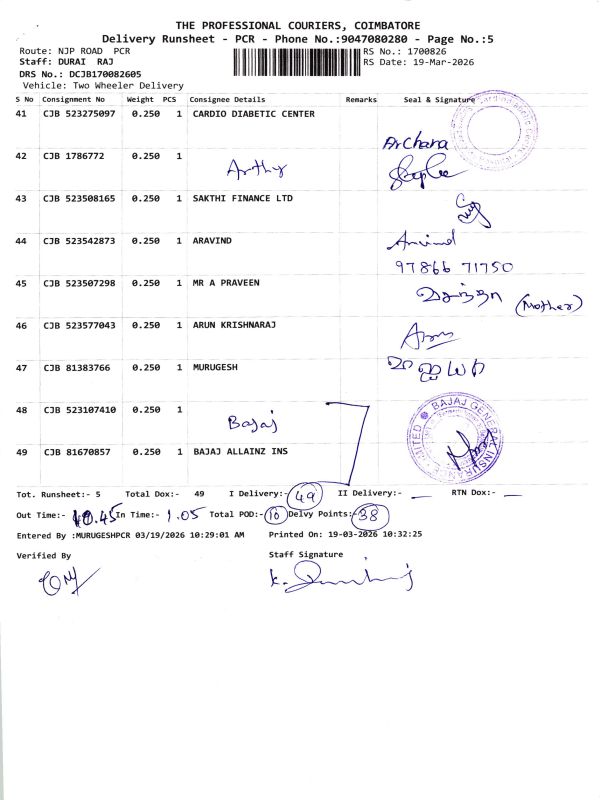 THE PROFESSIONAL COURIERS, COIMBATORE
Delivery Runsheet - PCR - Phone No.:9047080280 - Page No.:5
Route: NJP ROAD PCR RS No.: 1700826
Staff: DURAI RAJ RS Date: 19-Mar-2026
DRS No.: DCJB170082605
Vehicle: Two Wheeler Delivery
S No Consignment No Weight PCS Consignee Details Remarks Seal & Signature
41 CJB 523275097 0.250 1 CARDIO DIABETIC CENTER
Archana
42 CJB 1786772 0.250 1 Arthy
43 CJB 523508165 0.250 1 SAKTHI FINANCE LTD
44 CJB 523542873 0.250 1 ARAVIND Arvind
97866 71750
45 CJB 523507298 0.250 1 MR A PRAVEEN
(Mother)
46 CJB 523577043 0.250 1 ARUN KRISHNARAJ
47 CJB 81383766 0.250 1 MURUGESH
48 CJB 523107410 0.250 1 Bajaj
BAJAJ GENERAL INSURANCE LIMITED
49 CJB 81670857 0.250 1 BAJAJ ALLAINZ INS
Tot. Runsheet:- 5 Total Dox:- 49 I Delivery:- 49 II Delivery:- — RTN Dox:- —
Out Time:- 10.45 In Time:- 1.05 Total POD:- 10 Delvy Points:- 38
Entered By :MURUGESHPCR 03/19/2026 10:29:01 AM Printed On: 19-03-2026 10:32:25
Verified By Staff Signature